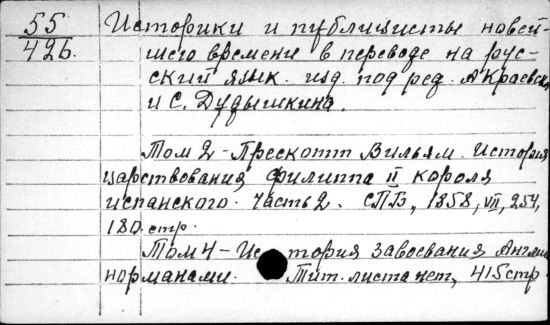 55
426.
Историки и публицисты новей-
шего времени в переводе на рус-
ский язык. изд. под ред. А Краевск
и С. Дудышкина.
Том 2 - Прескотт Вильям. История
царствования Филиппа II короля
испанского. Часть 2. СПБ, 1858, VII, 254,
180 стр.
Том 4 - История завоевания Англии
норманами. Тит. листа нет, 415 стр.